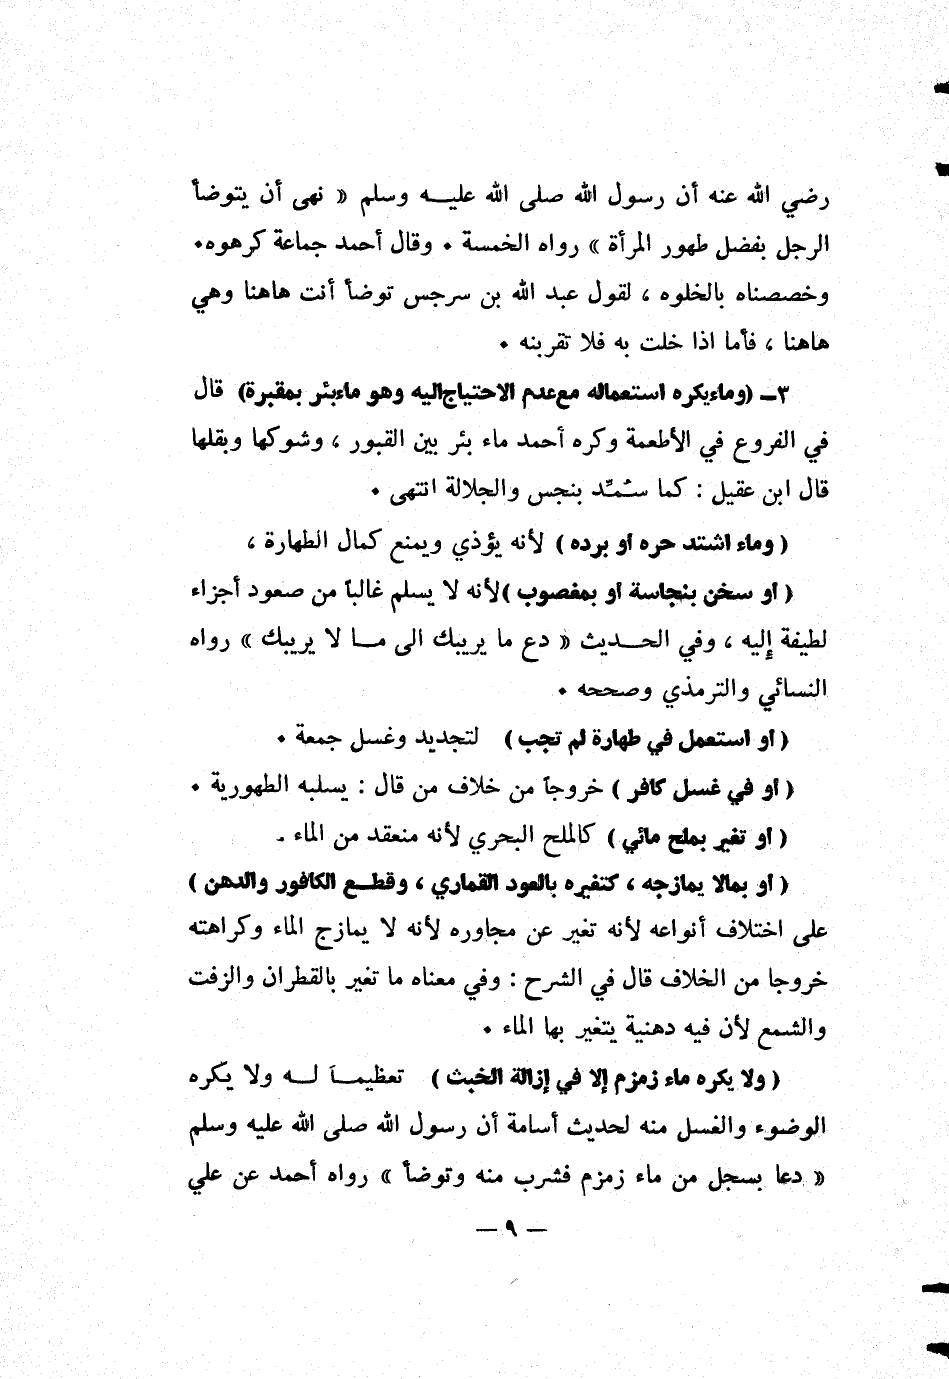 رضي الله عنه أن رسول الله صلى الله عليـــه وسلم « نهى أن يتوضأ
الرجل بفضل طهور المرأة » رواه الخمسة . وقال أحمد جماعة كرهوه.
وخصصناه بالخلوه ، لقول عبد الله بن سرجس توضأ أنت هاهنا وهي
هاهنا ، فأما اذا خلت به فلا تقربنه .
٣ـ (وماء يكره استعماله مع عدم الاحتياج اليه وهو ماء بئر بمقبرة) قال
في الفروع في الأطعمة وكره أحمد ماء بئر بين القبور ، وشوكها وبقلها
قال ابن عقيل : كما سُمِّد بنجس والجلالة انتهى .
( وماء اشتد حره او برده ) لأنه يؤذي ويمنع كمال الطهارة ،
( او سخن بنجاسة او بمغصوب )لأنه لا يسلم غالباً من صعود أجزاء
لطيفة إليه ، وفي الحـــديث « دع ما يريبك الى مـــا لا يريبك » رواه
النسائي والترمذي وصححه .
( او استعمل في طهارة لم تجب ) لتجديد وغسل جمعة .
( او في غسل كافر ) خروجاً من خلاف من قال : يسلبه الطهورية .
( او تغير بملح مائي ) كالملح البحري لأنه منعقد من الماء .
( او بمالا يمازجه ، كتغيره بالعود القماري ، وقطـع الكافور والدهن )
على اختلاف أنواعه لأنه تغير عن مجاوره لأنه لا يمازج الماء وكراهته
خروجا من الخلاف قال في الشرح : وفي معناه ما تغير بالقطران والزفت
والشمع لأن فيه دهنية يتغير بها الماء .
( ولا يكره ماء زمزم إلا في إزالة الخبث ) تعظيمـــاً لـــه ولا يكره
الوضوء والغسل منه لحديث أسامة أن رسول الله صلى الله عليه وسلم
« دعا بسجل من ماء زمزم فشرب منه وتوضأ » رواه أحمد عن علي
— ٩ —